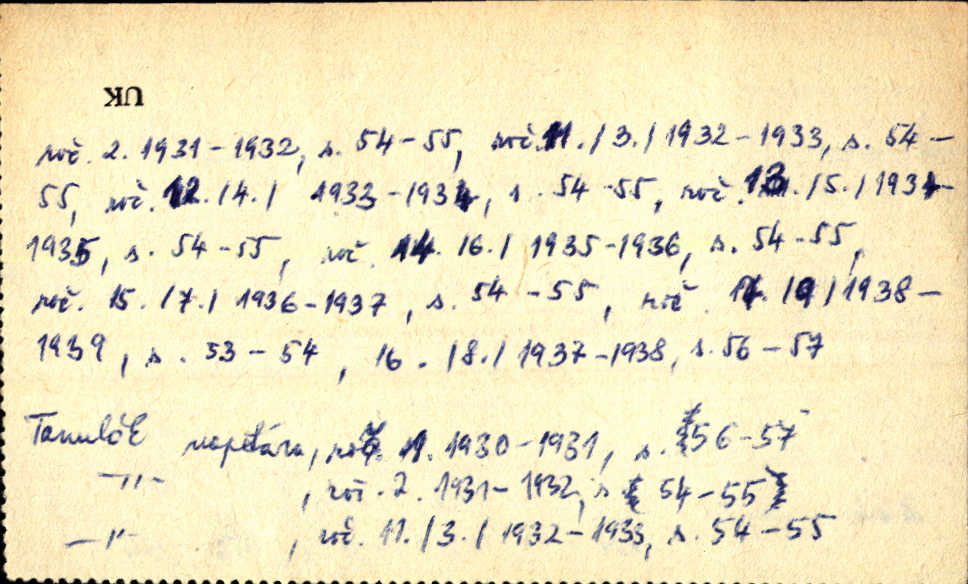 UK
roč. 2. 1931-1932, s. 54-55, roč. 11. /3./ 1932-1933, s. 54-
55, roč. 12. /4./ 1933-1934, s. 54-55, roč. 13. /5./ 1934-
1935, s. 54-55, roč. 14. /6./ 1935-1936, s. 54-55,
roč. 15. /7./ 1936-1937, s. 54-55, roč. 17. /9/ 1938-
1939, s. 53-54, 16. /8./ 1937-1938, s. 56-57
Tanulók naptára, roč. 1. 1930-1931, s. 56-57
-"- , roč. 2. 1931-1932, s. 54-55
-"- , roč. 11. /3./ 1932-1933, s. 54-55